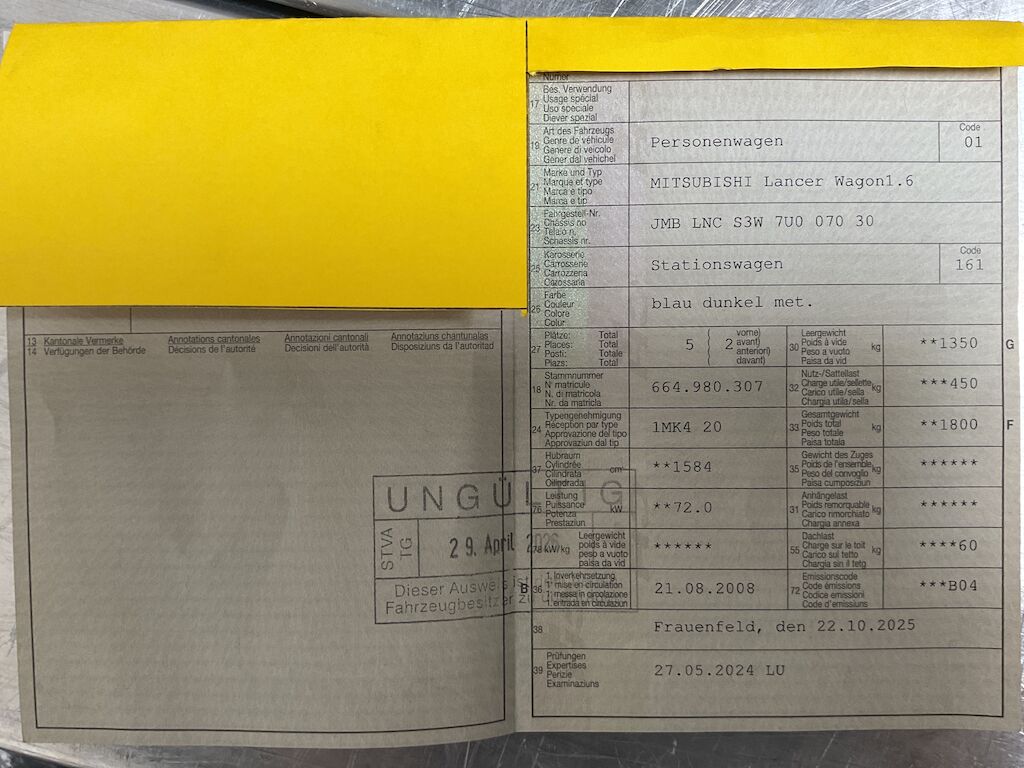 13 Kantonale Vermerke Annotations cantonales Annotazioni cantonali Annotaziuns chantunalas
14 Verfügungen der Behörde Décisions de l'autorité Decisioni dell'autorità Disposiziuns da l'autoritad
UNGÜLTIG
STVA TG
29. April 2026
Dieser Ausweis ist
Fahrzeugbesitzer zu
Numer
17 Bes. Verwendung
Usage spécial
Uso speciale
Diever spezial
19 Art des Fahrzeugs
Genre de véhicule
Genere di veicolo
Gener dal vehichel
Personenwagen
Code
01
21 Marke und Typ
Marque et type
Marca e tipo
Marca e tip
MITSUBISHI Lancer Wagon1.6
23 Fahrgestell-Nr.
Châssis no
Telaio n.
Schassis nr.
JMB LNC S3W 7U0 070 30
25 Karosserie
Carrosserie
Carrozzeria
Carossaria
Stationswagen
Code
161
26 Farbe
Couleur
Colore
Colur
blau dunkel met.
27 Plätze: Total
Places: Total
Posti: Totale
Plazs: Total
5 ( 2 vorne)
avant)
anteriori)
davant)
30 Leergewicht
Poids à vide
Peso a vuoto
Paisa da vid
kg
**1350
G
18 Stammnummer
N matricule
N. di matricola
Nr. da matricla
664.980.307
32 Nutz-/Sattellast
Charge utile/sellette
Carico utile/sella
Chargia utila/sella
kg
***450
24 Typengenehmigung
Réception par type
Approvazione del tipo
Approvaziun dal tip
1MK4 20
33 Gesamtgewicht
Poids total
Peso totale
Paisa totala
kg
**1800
F
37 Hubraum
Cylindrée
Cilindrata
Cilindrada
cm³
**1584
35 Gewicht des Zuges
Poids de l'ensemble
Peso del convoglio
Paisa cumposiziun
kg
******
76 Leistung
Puissance
Potenza
Prestaziun
kW
**72.0
31 Anhängelast
Poids remorquable
Carico rimorchiato
Chargia annexa
kg
******
78 kW/kg
Leergewicht
poids à vide
peso a vuoto
paisa da vid
******
55 Dachlast
Charge sur le toit
Carico sul tetto
Chargia sin il tetg
kg
****60
B 36 1. Inverkehrsetzung
1re mise en circulation
1. messa in circolazione
1. entrada en circulaziun
21.08.2008
72 Emissionscode
Code émissions
Codice emissioni
Code d'emissiuns
***B04
38 Frauenfeld, den 22.10.2025
39 Prüfungen
Expertises
Perizie
Examinaziuns
27.05.2024 LU